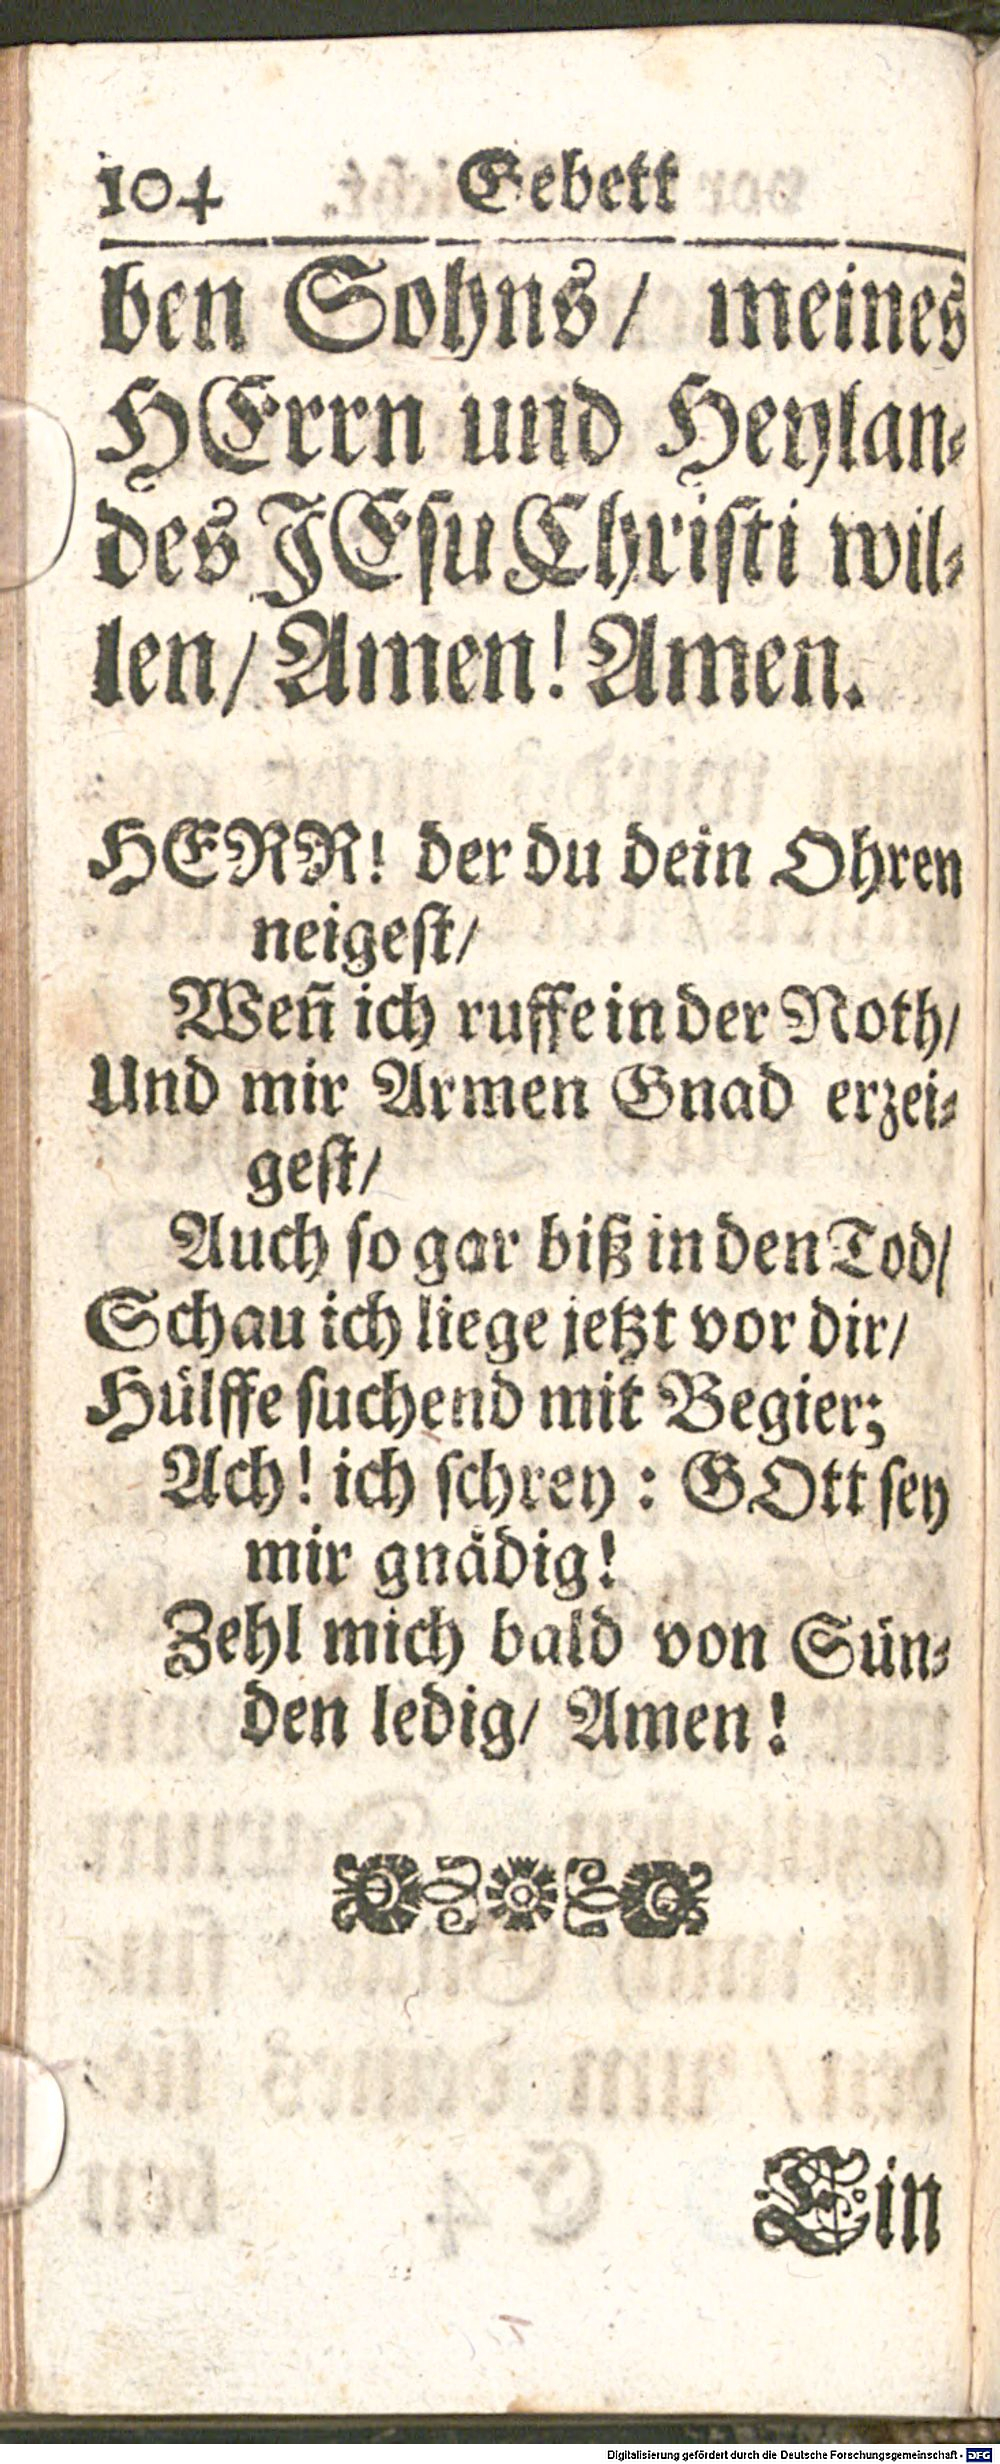 104 Gebett
ben Sohns/ meines
HErrn und Heylan-
des JEsu Christi wil-
len/ Amen! Amen.
HERR! der du dein Ohren
neigest/
Weñ ich ruffe in der Noth/
Und mir Armen Gnad erzei-
gest/
Auch so gar biß in den Tod/
Schau ich liege jetzt vor dir/
Hülffe suchend mit Begier;
Ach! ich schrey: GOtt sey
mir gnädig!
Zehl mich bald von Sün-
den ledig/ Amen!
Ein
Digitalisierung gefördert durch die Deutsche Forschungsgemeinschaft - DFG